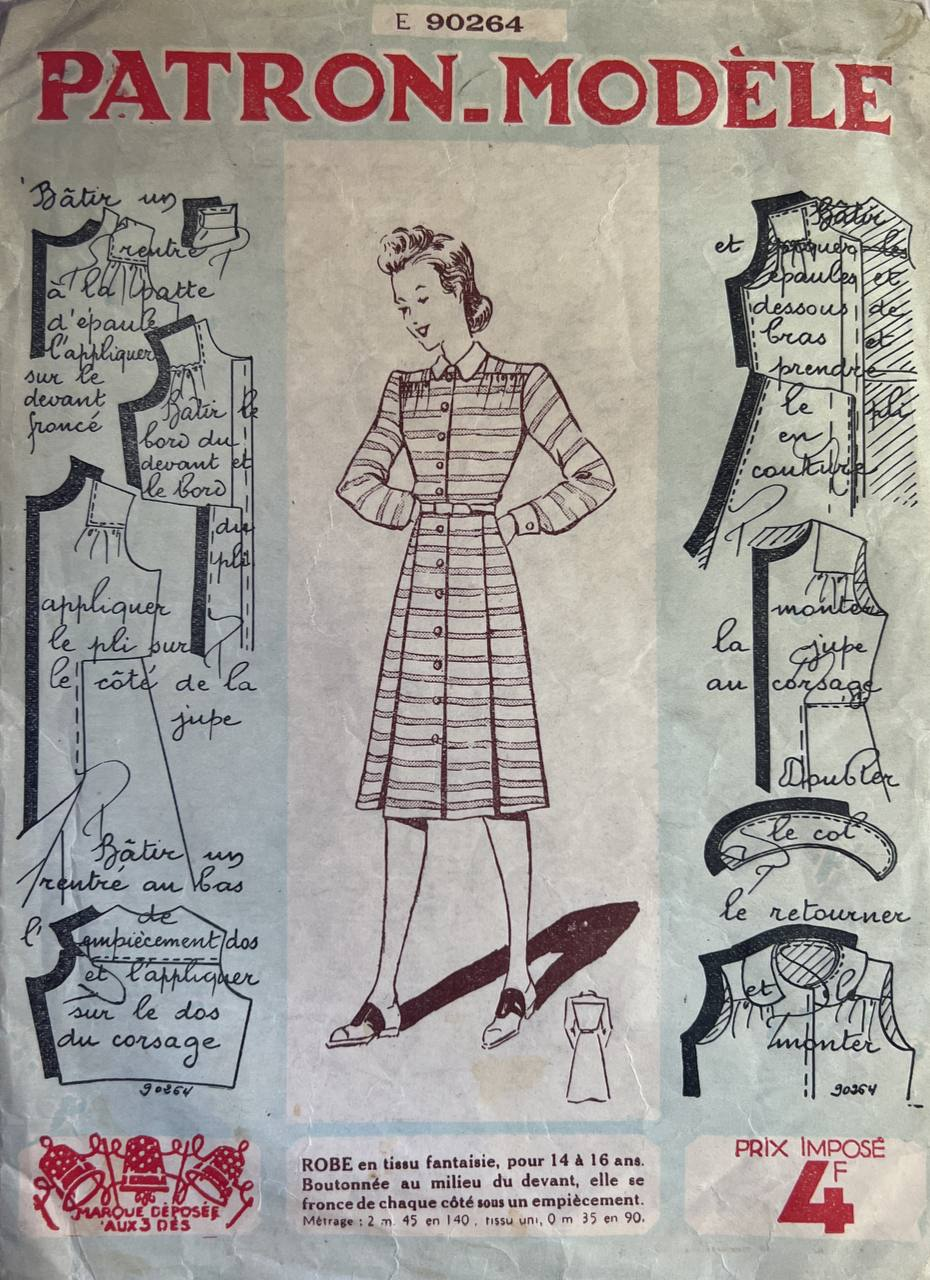 E 90264
PATRON-MODÈLE
Bâtir un
rentré
à la patte
d'épaule
l'appliquer
sur le
devant
froncé
Bâtir le
bord du
devant et
le bord
du
pli
appliquer
le pli sur
le côté de la
jupe
Bâtir un
rentré au bas
de
l'empiècement dos
et l'appliquer
sur le dos
du corsage
90264
Bâtir
et les
épaules et
dessous de
bras et
prendre
le pli
en
couture
monter
la jupe
au corsage
Doubler
le col
le retourner
et le
monter
90264
MARQUE DÉPOSÉE
AUX 3 DÉS
ROBE en tissu fantaisie, pour 14 à 16 ans.
Boutonnée au milieu du devant, elle se
fronce de chaque côté sous un empiècement.
Métrage : 2 m. 45 en 140, tissu uni, 0 m 35 en 90.
PRIX IMPOSÉ
4F